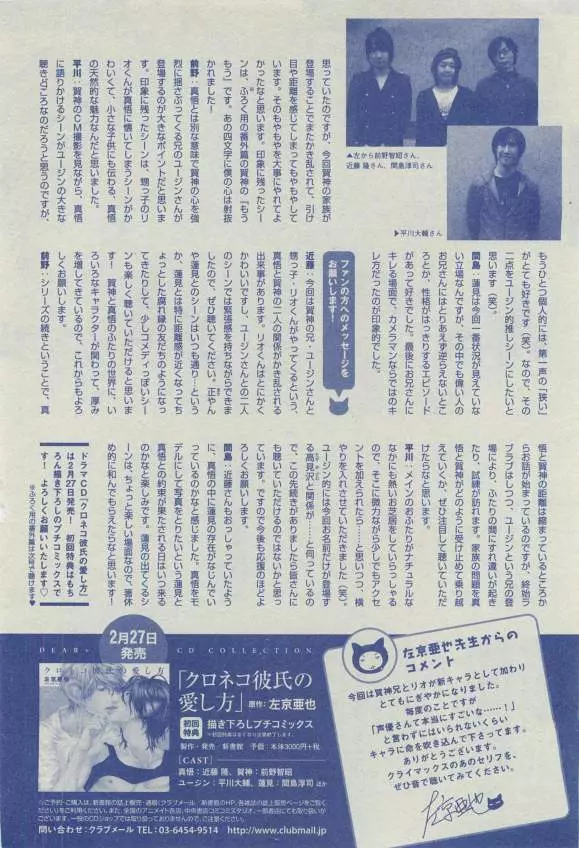 思っていたのですが、今回賀神の家族が
登場することでまたかき乱されて、引け
目や距離を感じてしまってもやもやして
います。そのもやもやを大事にやれてよ
かったなと思います。印象に残ったシー
ンは、ふろく用の番外篇の賀神の「もう
もう」です。あの四文字に僕の心は射抜
かれました!
前野：真悟とは別な意味で賀神の心を強
烈に揺さぶってくる兄のユージンさんが
登場するのが大きなポイントだと思いま
す。印象に残ったシーンは、甥っ子のリ
オくんが真悟に懐いてしまうシーンがか
わいくて、小さな子供にも伝わる、真悟
の天然的な魅力なんだと思いました。
平川：賀神のCM撮影を見ながら、真悟
に語りかけるシーンがユージンの大きな
聴きどころなのだろうと思うのですが、
▲左から前野智昭さん、
近藤 隆さん、間島淳司さん
▶平川大輔さん
もうひとつ個人的には、第一声の「狭い」
がとても好きです(笑)。なので、その
二点をユージン的推しシーンにしたいと
思います(笑)。
間島：蓮見は今回一番状況が見えていな
い立場なんですが、その中でも偉い人の
お兄さんにはとりあえず逆らえないとこ
ろとか、性格がはっきりするエピソード
があって好きでした。最後にお兄さんに
キレる場面で、カメラマンならではのキ
レ方だったのが印象的でした。
ファンの方へのメッセージを
お願いします!
近藤：今回は賀神の兄・ユージンさんと
甥っ子・リオくんがやってくるという、
真悟と賀神の二人の関係がかき乱される
出来事があります。リオくんはとにかく
かわいいですし、ユージンさんとの二人
のシーンでは緊張感を持ちながらできま
したので、ぜひ聴いてください。正やん
や蓮見とのシーンはいつも通り…という
か、蓮見とは特に距離感が近くなってち
ょっとした腐れ縁の友だちのようになっ
てきたりして、少しコメディっぽいシー
ンも楽しく聴いていただけると思いま
す! 賀神と真悟のふたりの世界に、い
ろいろなキャラクターが関わって、厚み
を増してきているので、これからもよろ
しくお願いします。
前野：シリーズの続きということで、真
悟と賀神の距離は縮まっているところか
らお話が始まっているのですが、終始ラ
ブラブはしつつ、ユージンという兄の登
場により、ふたりの間にすれ違いが起き
たり、試練が訪れます。家族の問題を真
悟と賀神がどのように受け止めて乗り越
えていくか、ぜひ注目して聴いていただ
けたらなと思います。
平川：メインのおふたりがナチュラルな
なかにも熱いお芝居をしていらっしゃる
ので、そこに微力ながら少しでもアクセ
ントを加えられたら……と思いつつ、横
やりを入れさせていただきました(笑)。
ユージン的には今回お名前だけが登場す
る高見沢と関係が……と伺っているの
で、この先続きがありましたら皆さんに
も聴いていただけるのではないかと思っ
ています。ですので今後も応援のほどよ
ろしくお願いします。
間島：近藤さんもおっしゃっていたよう
に、真悟の中に蓮見の存在がなじんでい
っているのかなと感じました。真悟をモ
デルにして写真をとりたいという蓮見と
真悟との約束が果たされる日はいつ来る
のかなと楽しみです。蓮見の出てくるシ
ーンは、ちょっと楽しい場面なので、箸休
め的に和んでもらえたらなと思います!
ドラマCD「クロネコ彼氏の愛し方」
は2月27日発売! 初回特典はもち
ろん描き下ろしのプチコミックスで
す! よろしくお願いいたします♡
※ふろく用の番外篇は次号で聴けます♥
2月27日
発売
DEAR+ CD COLLECTION
クロネコ彼氏の愛し方
左京亜也
「クロネコ彼氏の
愛し方」原作：左京亜也
初回
特典 描き下ろしプチコミックス
※初回特典はなくなり次第終了します。
製作・発売 新書館 予価：本体3000円+税
[CAST]
真悟：近藤 隆、賀神：前野智昭
ユージン：平川大輔、蓮見：間島淳司 ほか
問い合わせ：クラブメール TEL：03-6454-9514 http://www.clubmail.jp
左京亜也先生からの
コメント
今回は賀神兄とリオが新キャラとして加わり
とてもにぎやかになりました。
毎度のことですが
「声優さんて本当にすごいな……!」
と言わずにはいられないくらい
キャラに命を吹き込んで下さってます。
ありがとうございます。
クライマックスのあのセリフを、
ぜひ音で聴いてみてください。
左京亜也